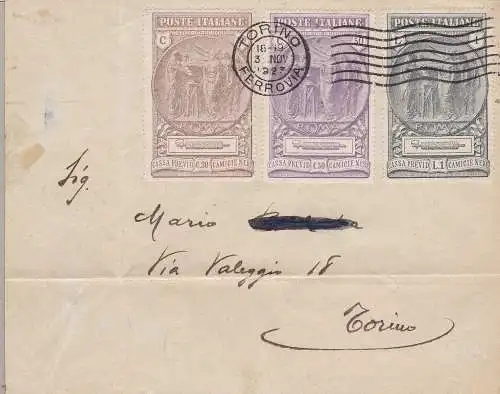 POSTE ITALIANE POSTE ITALIANE POSTE ITALIANE
C
TORINO
18-19
3 NOV
1923
FERROVIA
CASSA PREVID C.30 CAMICIE NERE
CASSA PREVID C.50 CAMICIE NERE
CASSA PREVID L.1 CAMICIE NERE
Sig.
Mario
Via Valeggio 18
Torino